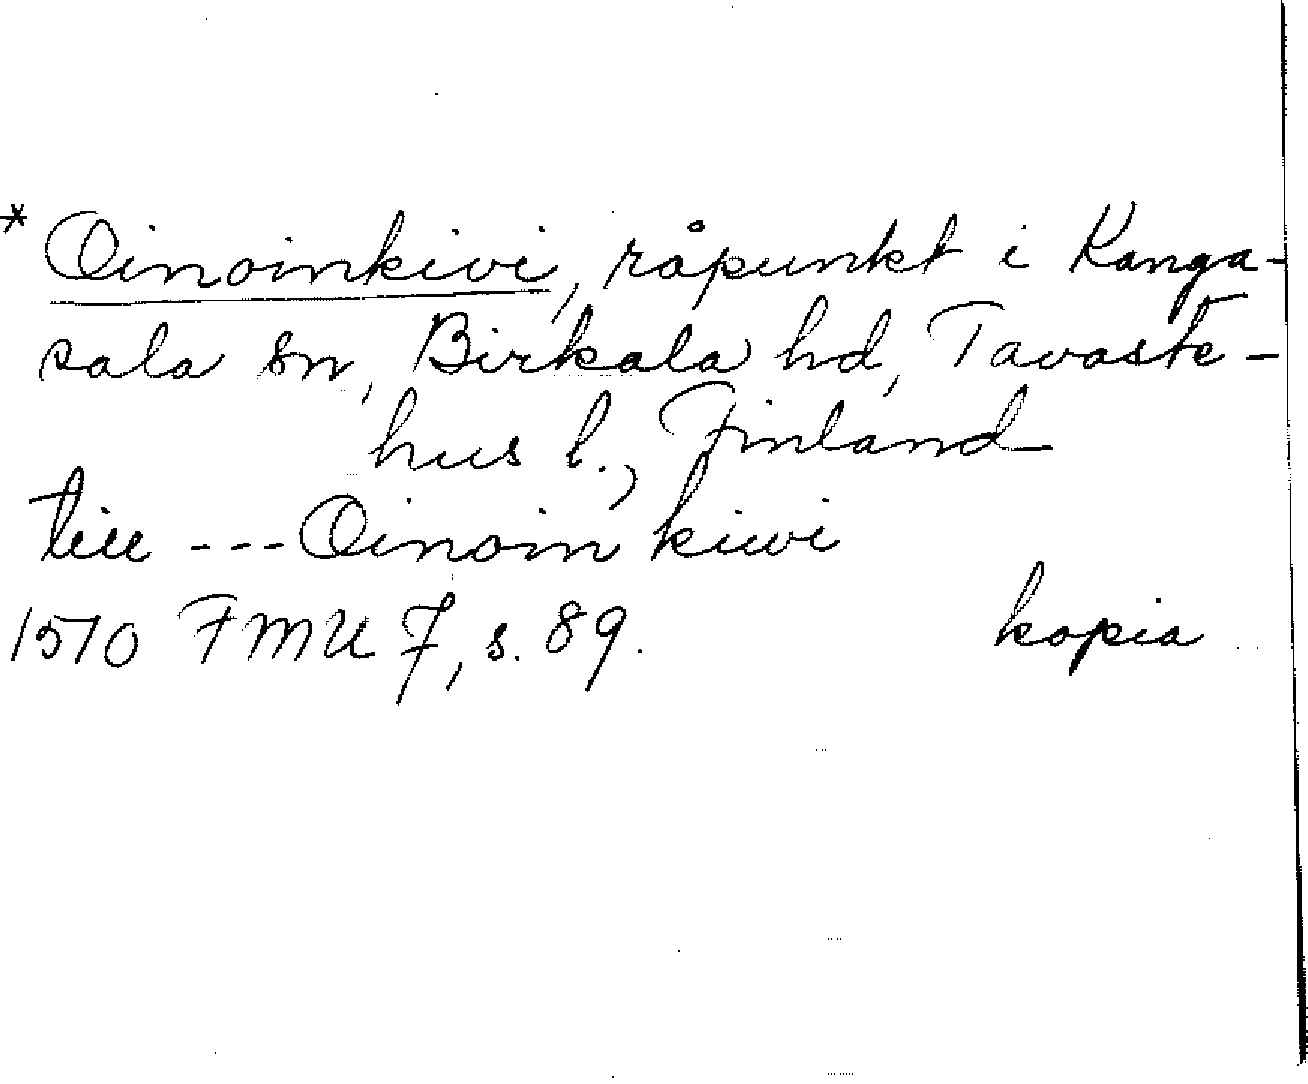 * Oinoinkivi, råpunkt i Kanga-
sala sn, Birkala hd, Tavaste-
hus l., Finland
till --- Oinoin kiwi
1510 FMU 7, s. 89.
kopia